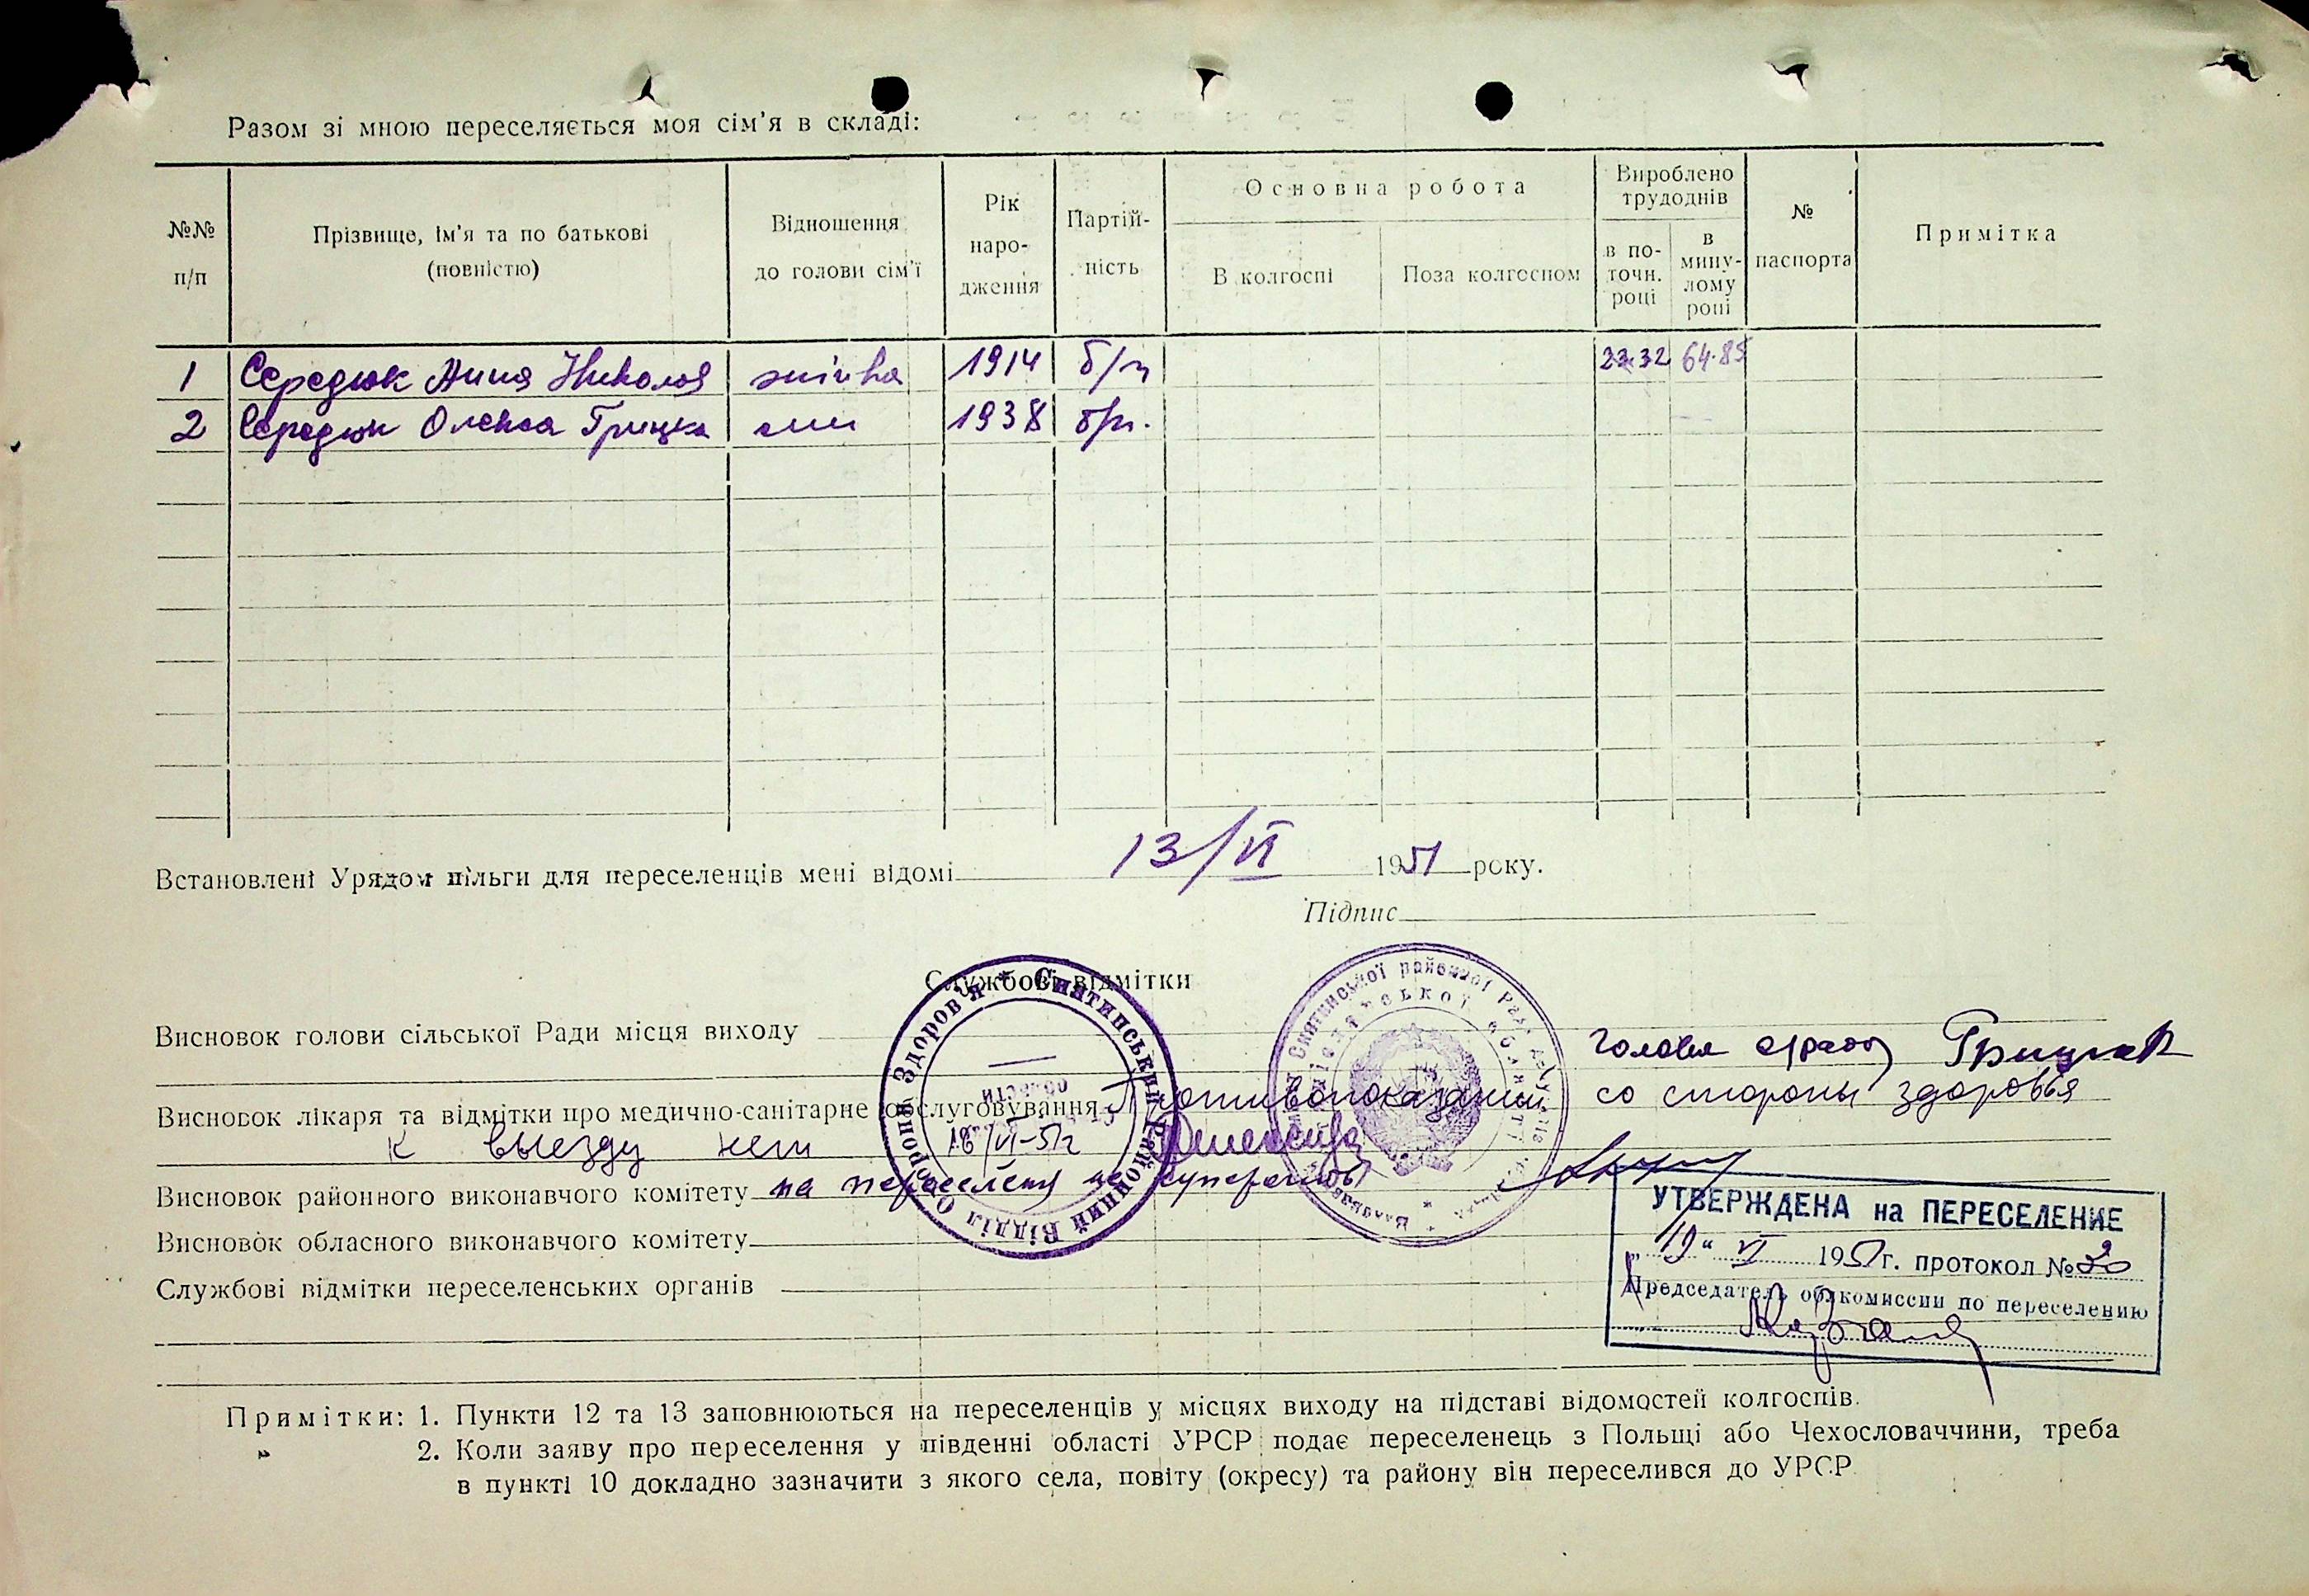 Разом зі мною переселяється моя сім'я в складі:
№№ п/п
Прізвище, ім'я та по батькові (повністю)
Відношення до голови сім'ї
Рік народження
Партійність
Основна робота
В колгоспі
Поза колгоспом
Вироблено трудоднів
в поточн. році
в минулому році
№ паспорта
Примітка
1 Середюк Анна Николов жінка 1914 б/п 23.32 64.85
2 Середюк Олекса Грицка син 1938 б/п.
Встановлені Урядом пільги для переселенців мені відомі 13/VI 1951 року.
Підпис
Службові відмітки
Висновок голови сільської Ради місця виходу
Голова с/ради Грицюк
Висновок лікаря та відмітки про медично-санітарне обслуговування Противопоказаний со стороны здоровья
к выезду нет 18/VI-51г
Висновок районного виконавчого комітету на переселення не
Висновок обласного виконавчого комітету
Службові відмітки переселенських органів
Снятинський Районний Відділ Охорони Здоров'я
области
Снятинської районної Ради депутатів
УТВЕРЖДЕНА на ПЕРЕСЕЛЕНИЕ
„19“ VI 1951г. протокол № 20
Председатель облкомиссии по переселению
Примітки: 1. Пункти 12 та 13 заповнюються на переселенців у місцях виходу на підставі відомостей колгоспів.
2. Коли заяву про переселення у південні області УРСР подає переселенець з Польщі або Чехословаччини, треба
в пункті 10 докладно зазначити з якого села, повіту (окресу) та району він переселився до УРСР